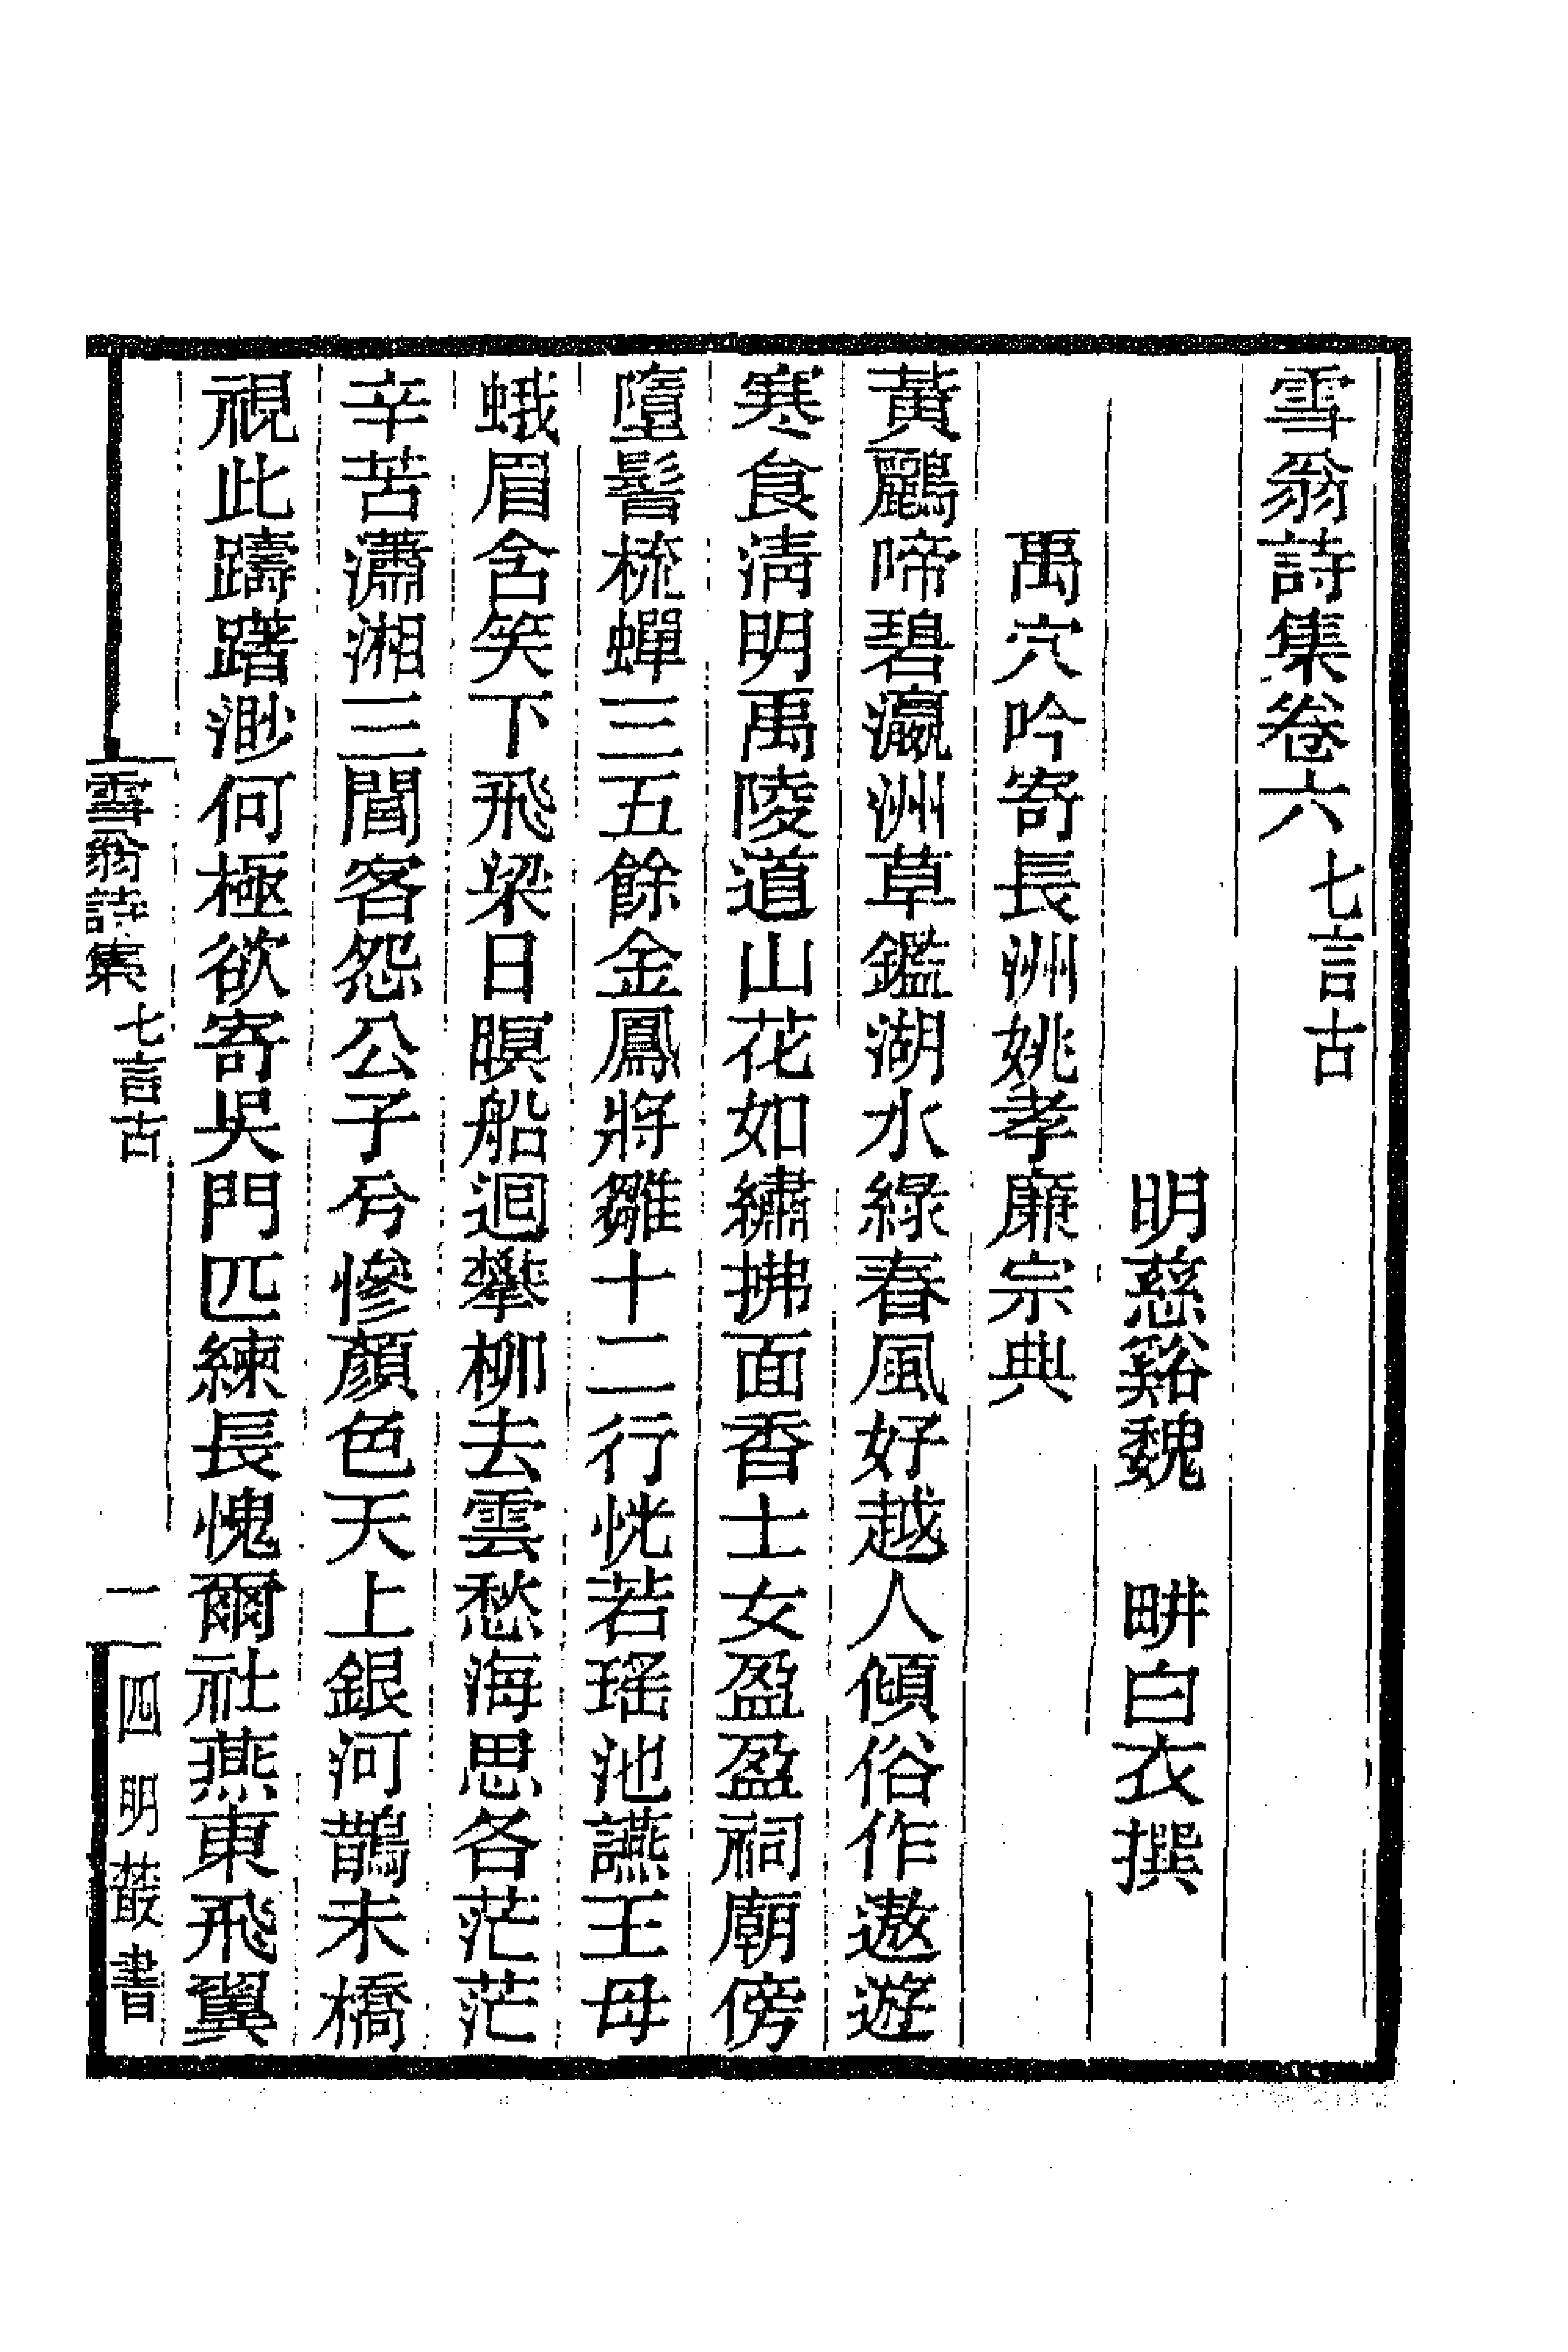 雪翁詩集卷六 七言古
明慈谿魏　畊白衣撰
禹穴吟寄長洲姚孝廉宗典
黃鸝啼碧瀛洲草鑑湖水綠春風好越人傾俗作遨遊
寒食淸明禹陵道山花如繡拂面香士女盈盈祠廟傍
墮髻梳蟬三五餘金鳳將雛十二行恍若瑤池讌王母
蛾眉含笑下飛梁日暝船迴攀柳去雲愁海思各茫茫
辛苦瀟湘三閭客怨公子兮慘顏色天上銀河鵲未橋
視此躊躇渺何極欲寄吳門匹練長愧爾社燕東飛翼
雪翁詩集 七言古
一
四明叢書